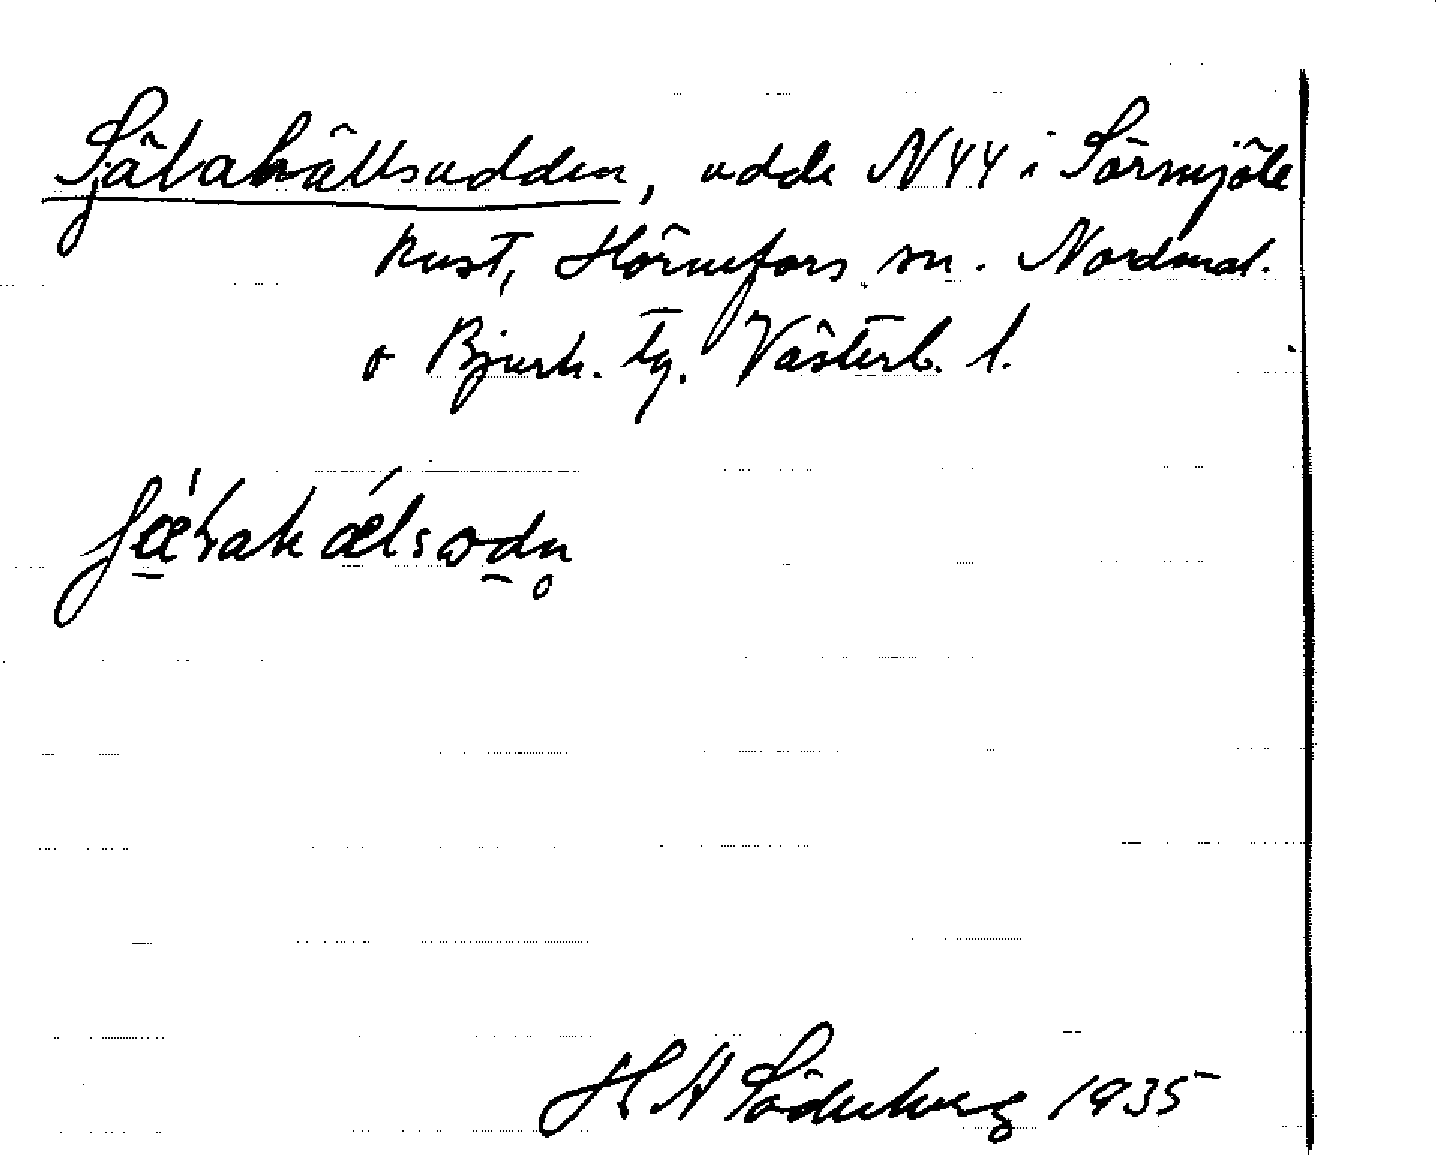 Själahällsudden, udde N44 i Sörmjöle
kust, Hörnefors sn. Nordmal.
o Bjurh. tg. Västerb. l.
H A Söderberg 1935